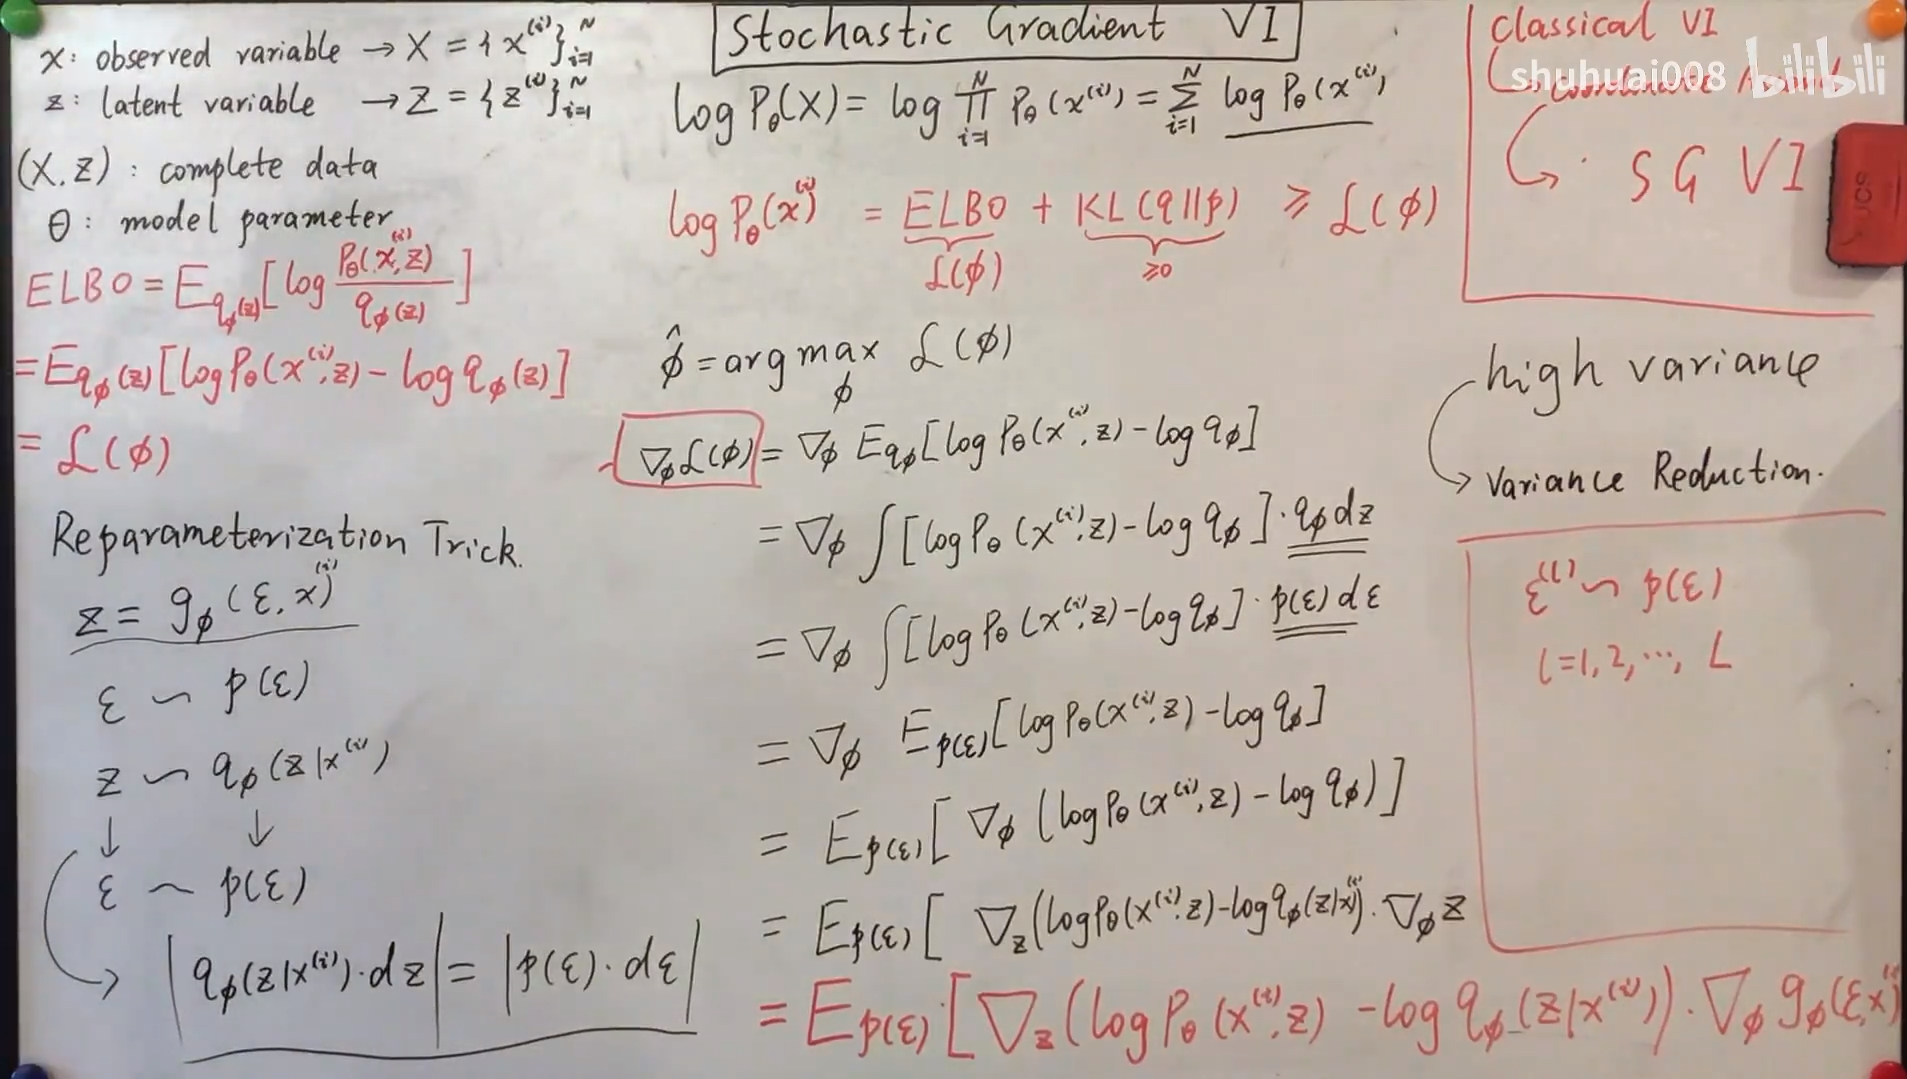 x: observed variable → X = {x^{(i)}}_{i=1}^{N}
z: latent variable → Z = {z^{(i)}}_{i=1}^{N}
(X, Z): complete data
θ: model parameter
ELBO = E_{q_ϕ(z)} [log P_θ(x^{(i)}, z) / q_ϕ(z)]
= E_{q_ϕ(z)} [log P_θ(x^{(i)}, z) - log q_ϕ(z)]
= ℒ(ϕ)
Reparameterization Trick.
z = g_ϕ(ε, x^{(i)})
ε ∼ p(ε)
z ∼ q_ϕ(z|x^{(i)})
↓ ↓
ε ∼ p(ε)
→ |q_ϕ(z|x^{(i)})·dz| = |p(ε)·dε|
Stochastic Gradient VI
log P_θ(X) = log ∏_{i=1}^{N} P_θ(x^{(i)}) = ∑_{i=1}^{N} log P_θ(x^{(i)})
log P_θ(x^{(i)}) = ELBO + KL(q||p) ≥ ℒ(ϕ)
ℒ(ϕ) ≥0
ϕ̂ = arg max_ϕ ℒ(ϕ)
∇_ϕ ℒ(ϕ) = ∇_ϕ E_{q_ϕ} [log P_θ(x^{(i)}, z) - log q_ϕ]
= ∇_ϕ ∫ [log P_θ(x^{(i)}, z) - log q_ϕ]·q_ϕ dz
= ∇_ϕ ∫ [log P_θ(x^{(i)}, z) - log q_ϕ]·p(ε) dε
= ∇_ϕ E_{p(ε)} [log P_θ(x^{(i)}, z) - log q_ϕ]
= E_{p(ε)} [∇_ϕ (log P_θ(x^{(i)}, z) - log q_ϕ)]
= E_{p(ε)} [∇_z (log P_θ(x^{(i)}, z) - log q_ϕ(z|x^{(i)})·∇_ϕ z
= E_{p(ε)} [∇_z (log P_θ(x^{(i)}, z) - log q_ϕ(z|x^{(i)}))·∇_ϕ g_ϕ(ε, x^{(i)})
Classical VI
shuhuai008 bilibili
→ SG VI
high variance
→ Variance Reduction.
ε^{(l)} ∼ p(ε)
l=1, 2, ···, L